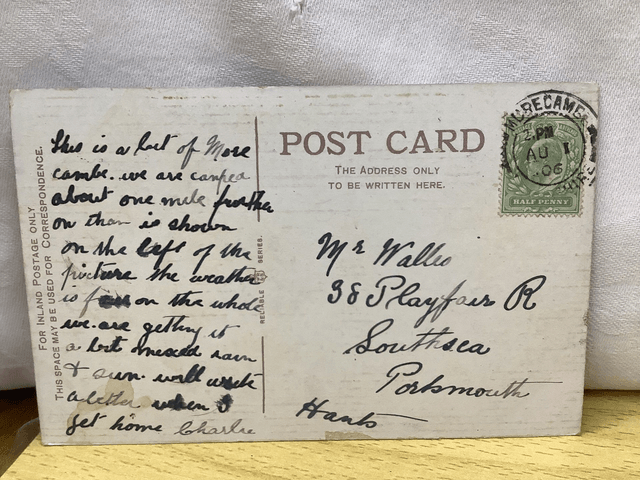 FOR INLAND POSTAGE ONLY
THIS SPACE MAY BE USED FOR CORRESPONDENCE.
This is a bit of More
cambe. we are camped
about one mile further
on than is shown
on the left of the
picture the weather
is fair on the whole
we are getting it
a bit mixed rain
& sun will write
a letter when I
get home Charlie
RELIABLE SERIES.
POST CARD
THE ADDRESS ONLY
TO BE WRITTEN HERE.
MORECAMBE
2 PM
AU 1
06
HALF PENNY
Mr Wallis
38 Playfair R
Southsea
Portsmouth
Hants